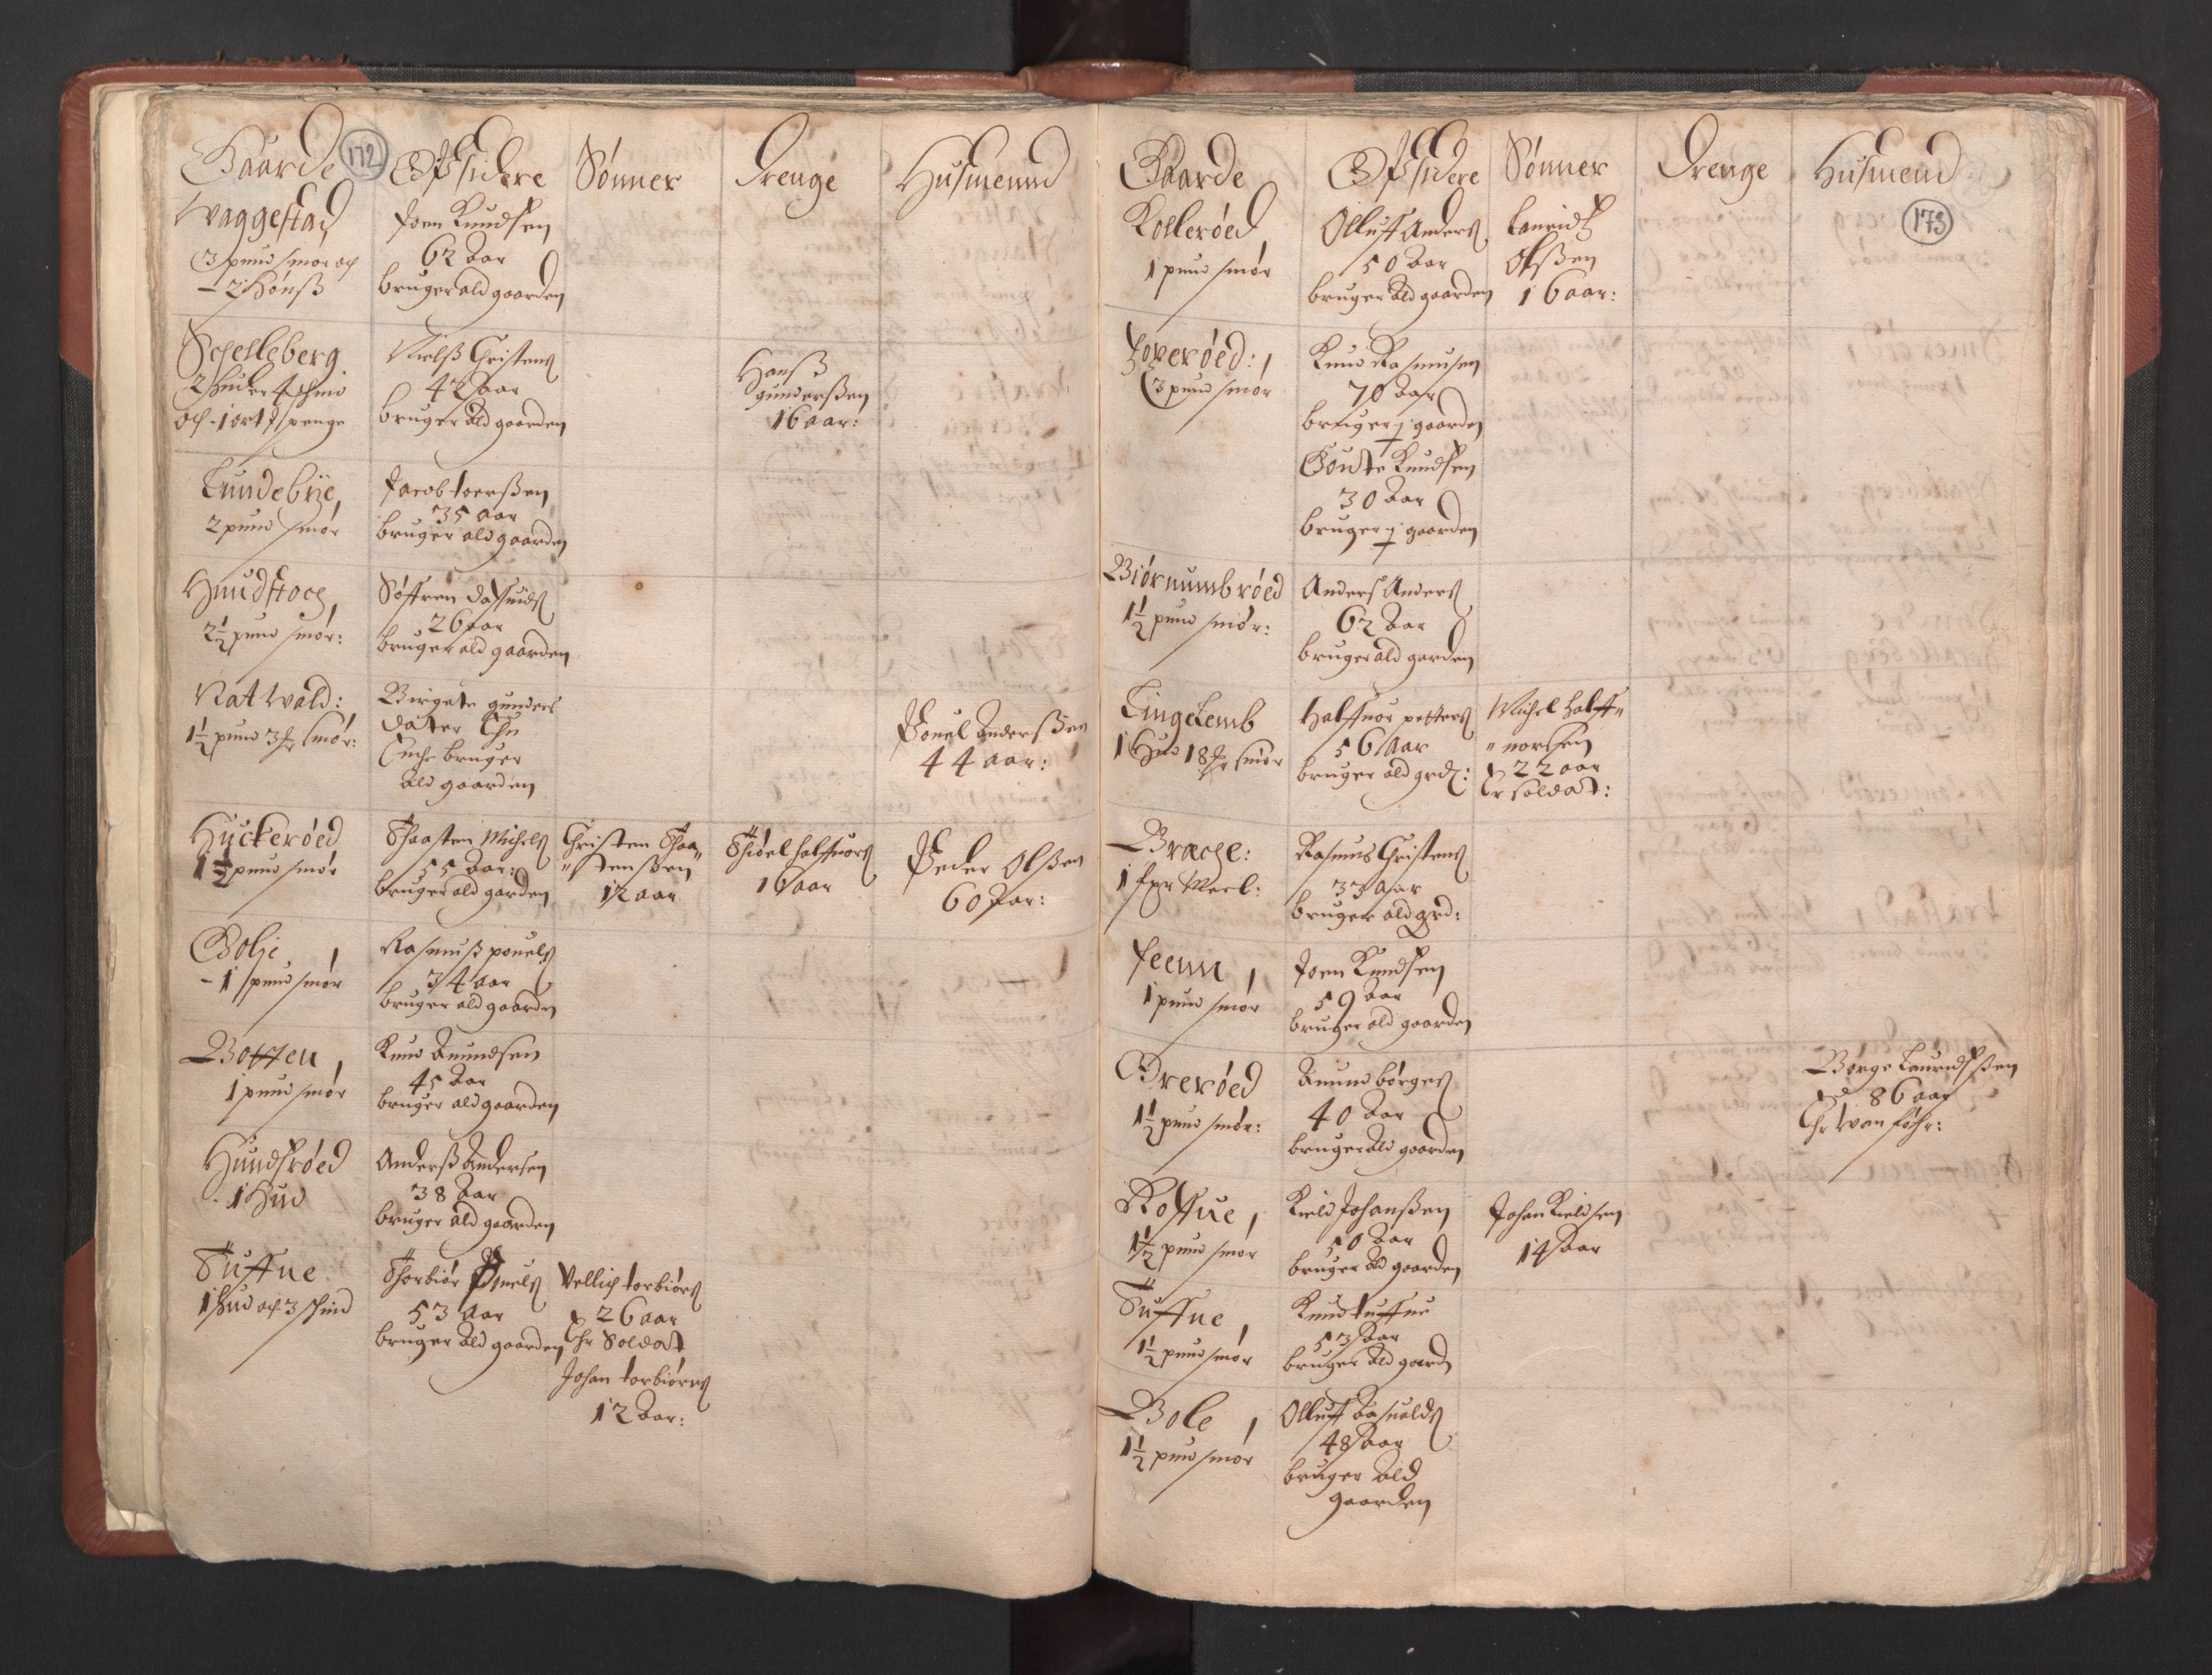 Gaarde 172 Opsidere Sønner Drenge Husmennd
Waggestad
3 pund smør och
- 2 Hønß
Joen Knudsen
62 Aar
bruger ald gaarden
Schelleberg
2 huder 4 schind
och - 1 ort penge
Nielß Christens
42 Aar
bruger Ald gaarden
Hanß
gunderßen
16 aar:
Lundebye,
2 pund smør
Jacob toerßen
35 aar
bruger ald gaarden
Hundstoch,
2½ pund smør:
Søffren
26 aar
bruger ald gaarden
Natwald:
1½ pund 3 smør:
Birgete gunders
dater Ehn
Enche bruger
Ald gaarden
Pouel Anderßen
44 aar:
Huckerøed
1½ pund smør
Thaasten Michels
55 Aar:
bruger ald garden
Christen Thaa„
„stenßen
12 aar
Thiøel halffuors
16 aar
Peder Olßen
60 Aar:
Bolje,
- 1 pund smør
Rasmuß pouels
34 aar
bruger ald gaarden
Botten,
1 pund smør
Knud Amundsen
45 Aar
bruger ald gaarden
Hundsrøed
- 1 Hud
Anderß Andersen
38 Aar
bruger ald gaarden
Tuffue
1 Hud och 3 schind
Thorbiør Pouels
53 Aar
bruger ald gaarden
Vellich torbiørs
26 aar
Ehr Soldat
Johan torbiørns
12 Aar:
Gaarde Opsidere Sønner Drenge Husmend
173
Kollerøed
1 pund smør
Olluff Anders
50 Aar
bruger Ald gaarden
Lauridz
Olßen
16 aar:
Joverøed:,
3 pund smør
Knud Rasmusen
70 Aar
bruger ½ gaarden
Goute Knudsen
30 Aar
bruger ½ gaarden
Biørnumbrøed
1½ pund smør:
Anders Anders
62 Aar
bruger ald garden
Lingelemb
1 Hud 18 smør
Halffuor petters
56 Aar
bruger ald grd:
Michel halff„
„norsen
22 aar
Er soldat:
Brache:
1 spn Meel:
Rasmus Christens
33 Aar
bruger ald grd:
Jeenn,
1 pund smør
Joen Knudsen
59 Aar
bruger ald gaarden
Brerøed
1½ pund smør:
Amund børges
40 Aar
bruger Ald gaarden
Børge Lauridsßen
86 aar
Ehr wanføhr:
Roffue,
1½ pund smør
Kield Johanßen
50 Aar
bruger Ald gaarden
Johan Kieldsen
14 Aar
Tuffue,
1½ pund smør
Knud tuffue
53 Aar
bruger Ald gaard
Bole,
1½ pund smør
Olluff Aasuolds
48 Aar
bruger Ald
gaarden